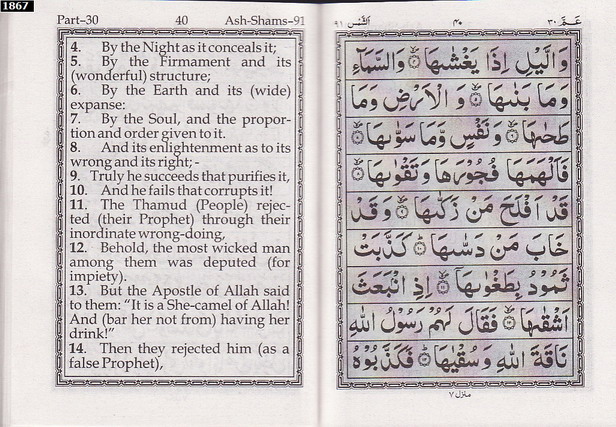 1867
Part–30 40 Ash-Shams–91
4. By the Night as it conceals it;
5. By the Firmament and its
(wonderful) structure;
6. By the Earth and its (wide)
expanse:
7. By the Soul, and the propor-
tion and order given to it.
8. And its enlightenment as to its
wrong and its right; -
9. Truly he succeeds that purifies it,
10. And he fails that corrupts it!
11. The Thamud (People) rejec-
ted (their Prophet) through their
inordinate wrong-doing,
12. Behold, the most wicked man
among them was deputed (for
impiety).
13. But the Apostle of Allah said
to them: “It is a She-camel of Allah!
And (bar her not from) having her
drink!”
14. Then they rejected him (as a
false Prophet),
عَمَّ ٣٠ ٤٠ اَلشَّمْس ٩١
وَالَّيْلِ اِذَا يَغْشٰىهَا ۪ۙ﴿۴﴾ وَالسَّمَآءِ
وَمَا بَنٰىهَا ۪ۙ﴿۵﴾ وَ الْاَرْضِ وَمَا
طَحٰىهَا ۪ۙ﴿۶﴾ وَ نَفْسٍ وَّمَا سَوّٰىهَا ۪ۙ﴿۷﴾
فَاَلْهَمَهَا فُجُوْرَهَا وَ تَقْوٰىهَا ۪ۙ﴿۸﴾
قَدْ اَفْلَحَ مَنْ زَكّٰىهَا ۪ۙ﴿۹﴾ وَ قَدْ
خَابَ مَنْ دَسّٰىهَا ﴿ؕ۱۰﴾ كَذَّبَتْ
ثَمُوْدُ بِطَغْوٰىهَاۤ ۪ۙ﴿۱۱﴾ اِذِ انْۢبَعَثَ
اَشْقٰىهَا ۪ۙ﴿۱۲﴾ فَقَالَ لَهُمْ رَسُوْلُ اللّٰهِ
نَاقَةَ اللّٰهِ وَ سُقْيٰهَا ﴿ؕ۱۳﴾ فَكَذَّبُوْهُ
منزل ٧